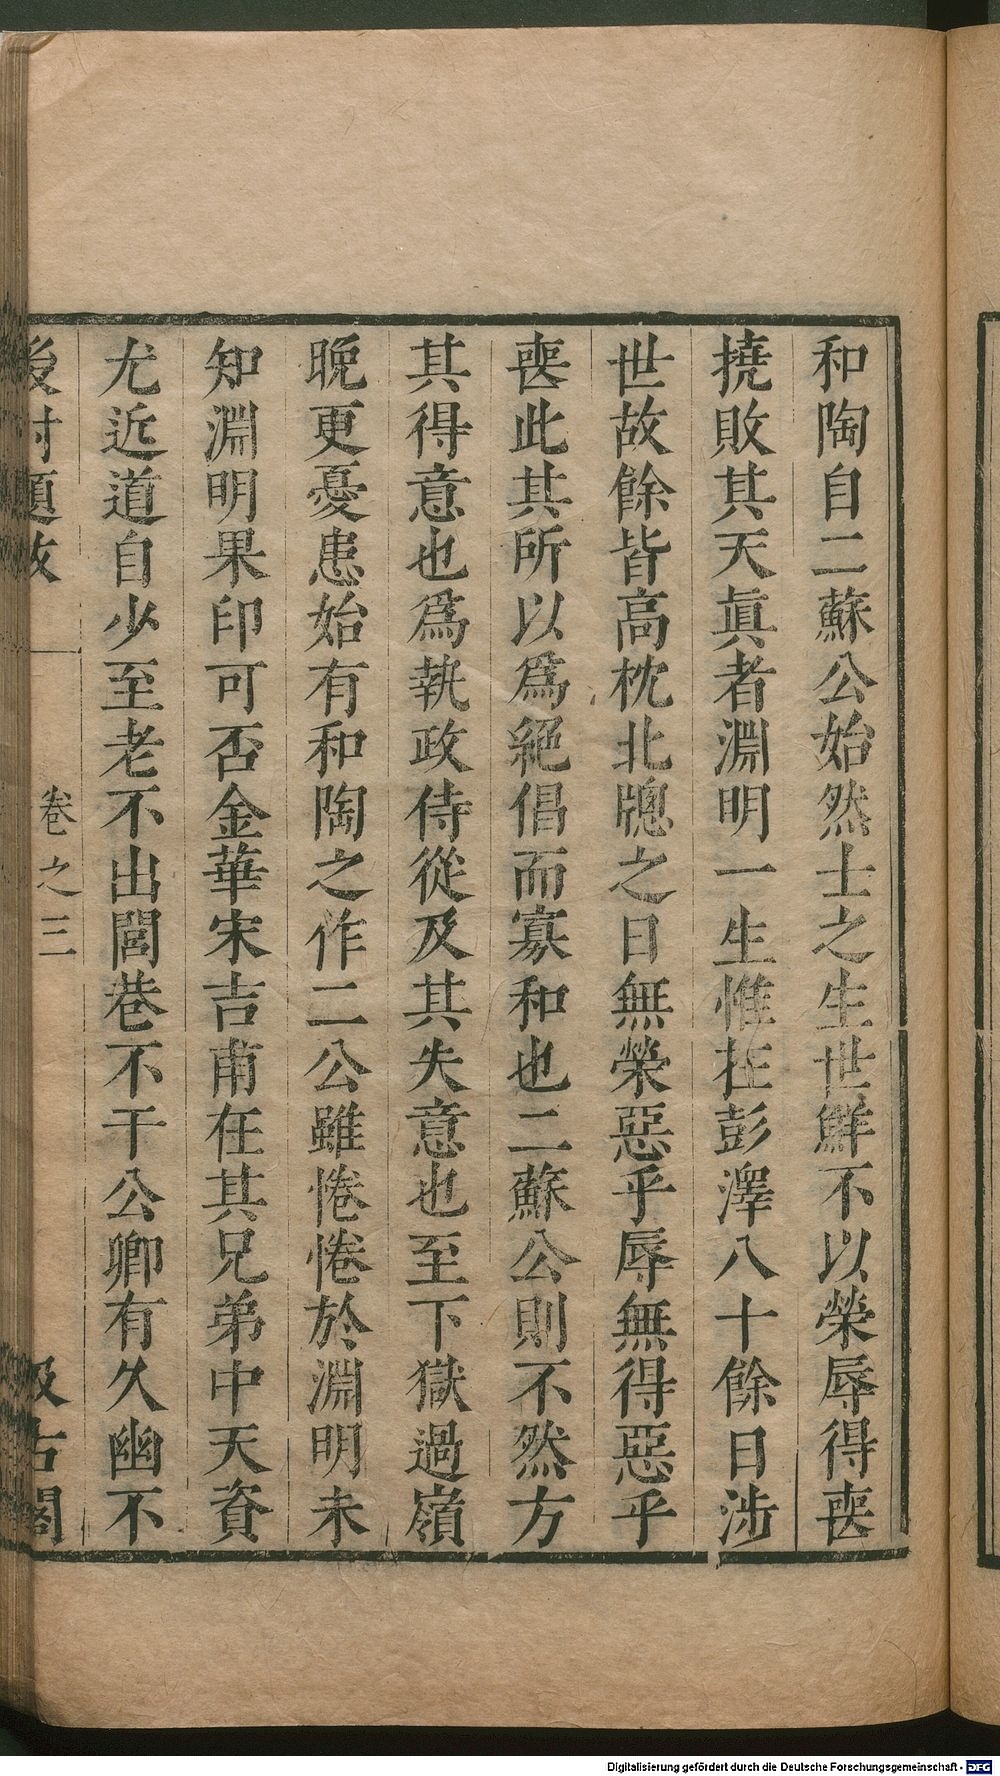 和陶自二蘇公始然士之生世鮮不以榮辱得喪
撓敗其天眞者淵明一生惟在彭澤八十餘日涉
世故餘皆高枕北牕之日無榮惡乎辱無得惡乎
喪此其所以爲絕倡而寡和也二蘇公則不然方
其得意也爲執政侍從及其失意也至下獄過嶺
晚更憂患始有和陶之作二公雖惓惓於淵明未
知淵明果印可否金華宋吉甫在其兄弟中天資
尤近道自少至老不出閭巷不干公卿有久幽不
後村題跋 卷之三 汲古閣
Digitalisierung gefördert durch die Deutsche Forschungsgemeinschaft - DFG